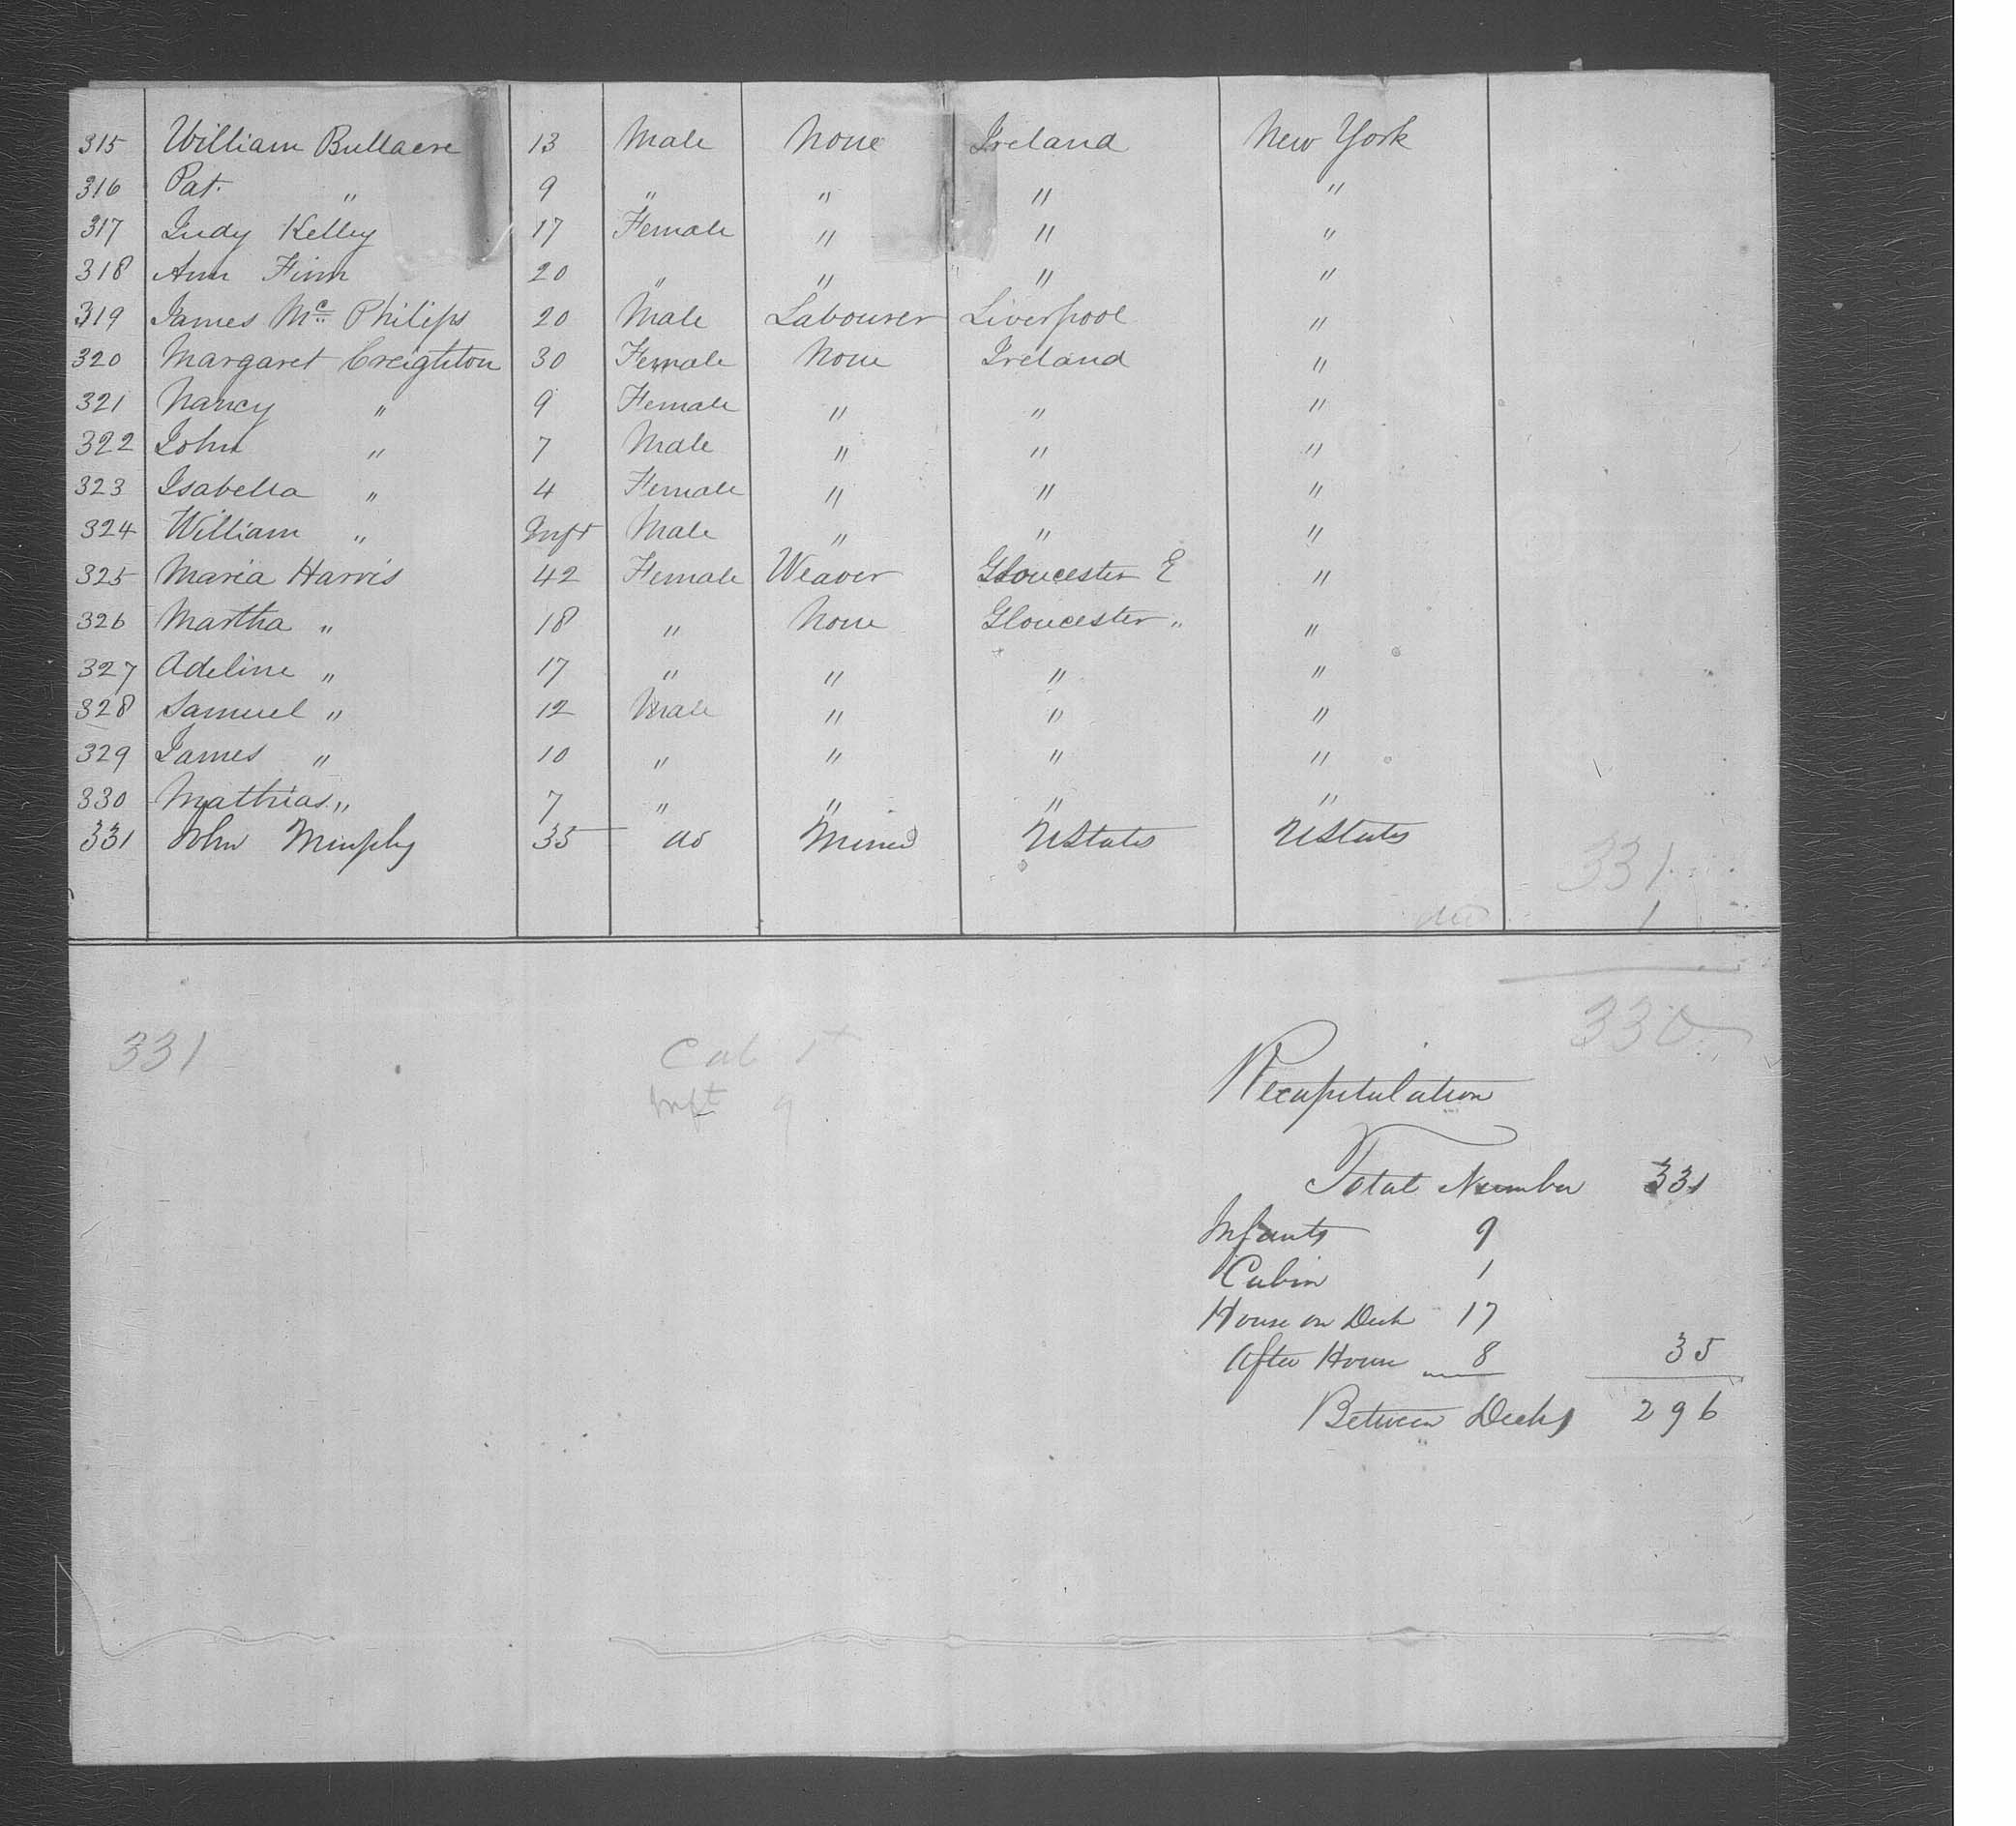 315 William Bullaere 13 Male None Ireland New York
316 Pat. " 9 " " " "
317 Judy Kelley 17 Female " " "
318 Ann Finn 20 " " " "
319 James Mc Philips 20 Male Labourer Liverpool "
320 Margaret Creighton 30 Female None Ireland "
321 Nancy " 9 Female " " "
322 John " 7 Male " " "
323 Isabella " 4 Female " " "
324 William " Inft Male " " "
325 Maria Harris 42 Female Weaver Gloucester E "
326 Martha " 18 " None Gloucester " "
327 Adeline " 17 " " " "
328 Samuel " 12 Male " " "
329 James " 10 " " " "
330 Mathias " 7 " " " "
331 John Murphy 35 do Miner UStates UStates
331
1
330
331 Cab 1
Inft 9
Recapitulation
Total Number 331
Infants 9
Cabin 1
House on Deck 17
After House 8 35
Between Decks 296